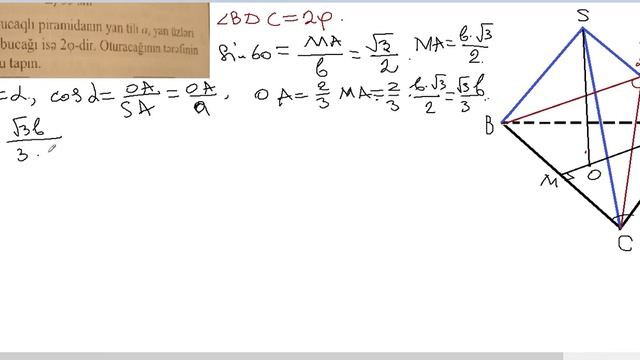 ucaqlı piramidanın yan tili a, yan üzləri
bucağı isə 2φ-dir. Oturacağının tərəfinin
u tapın.
∠BDC=2φ.
Sin60 = MA/b = √3/2 . MA = b·√3/2
=α, cosα = OA/SA = OA/a , OA = 2/3 MA = 2/3 · b·√3/2 = √3b/3.
√3b/3.
S
B
M
O
C